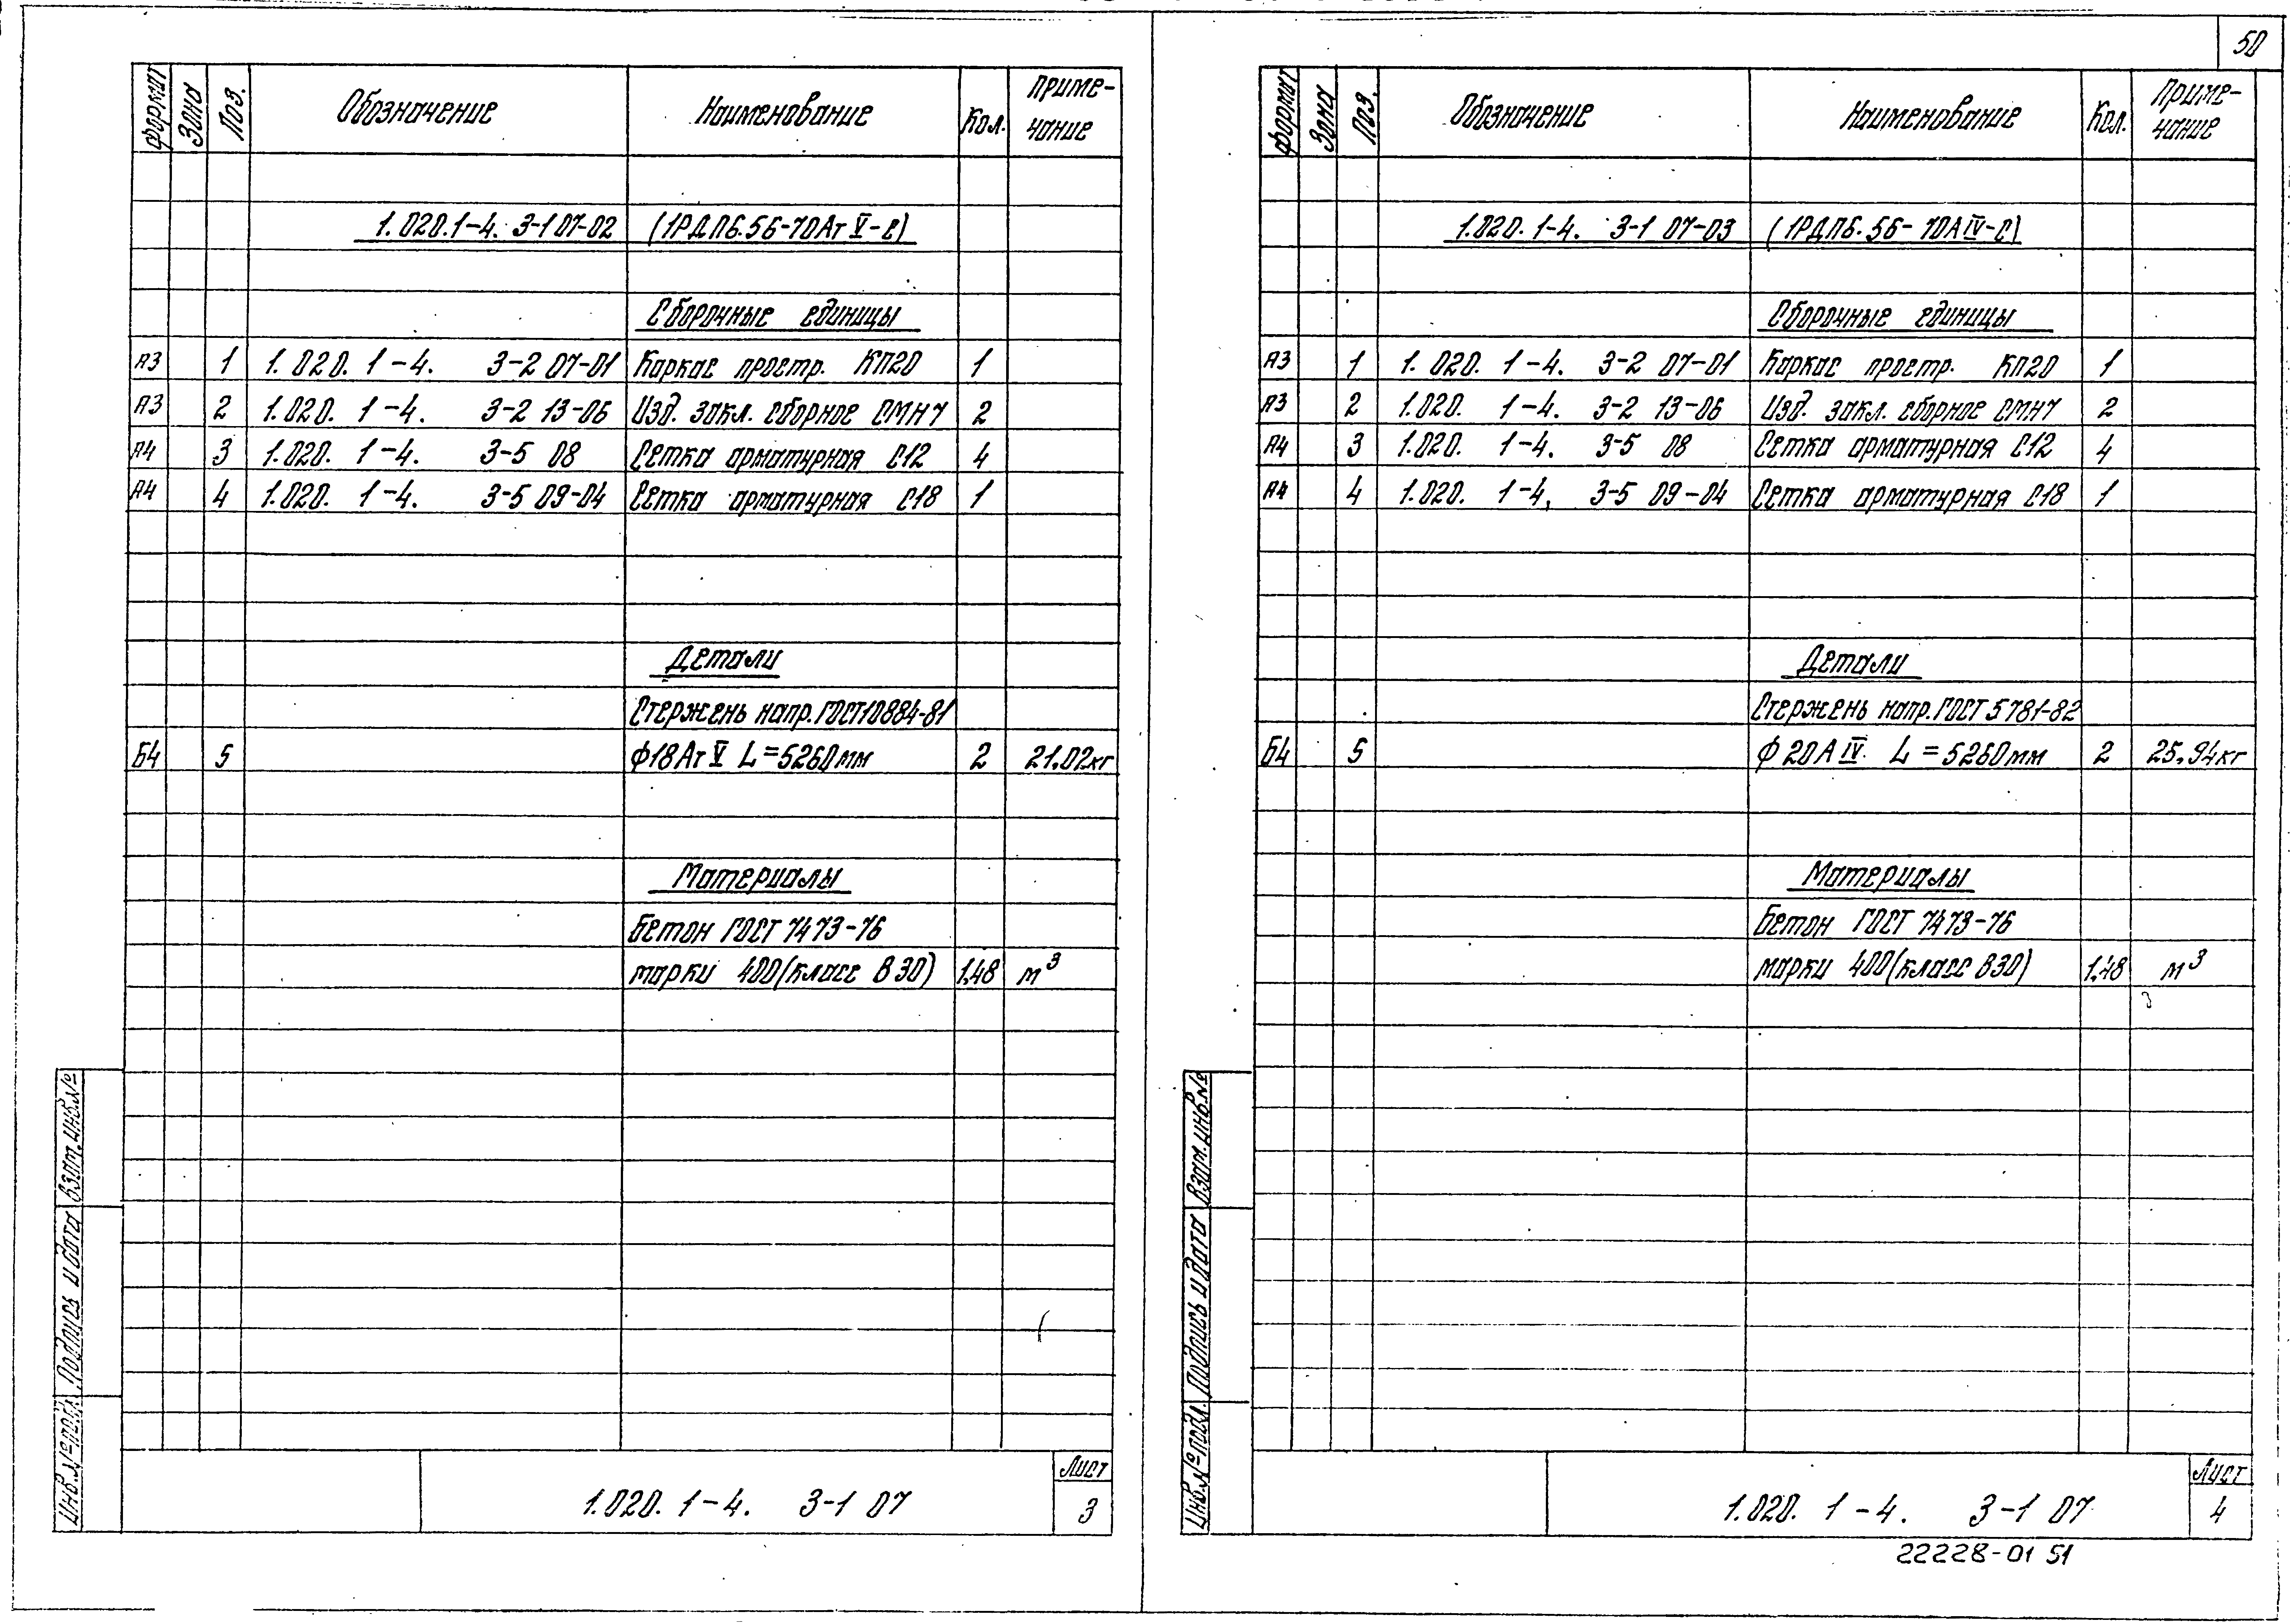 50
формат Зона Поз. Обозначение Наименование Кол. Приме-
чание
1.020.1-4. 3-1 07-02 (1РДП6.56-70АтV-С)
Сборочные единицы
А3 1 1.020.1-4. 3-2 07-01 Каркас простр. КП20 1
А3 2 1.020. 1-4. 3-2 13-06 Изд. закл. сборное СМН7 2
А4 3 1.020. 1-4. 3-5 08 Сетка арматурная С12 4
А4 4 1.020. 1-4. 3-5 09-04 Сетка арматурная С18 1
Детали
Стержень напр. ГОСТ10884-81
Б4 5 ф18АтV L=5260мм 2 21.02кг
Материалы
Бетон ГОСТ 7473-76
марки 400(класс В30) 1.48 м³
Инв.№подл. Подпись и дата Взам.инв.№
1.020. 1-4. 3-1 07
Лист
3
формат Зона Поз. Обозначение Наименование Кол. Приме-
чание
1.020. 1-4. 3-1 07-03 (1РДП6.56-70АIV-С)
Сборочные единицы
А3 1 1.020. 1-4. 3-2 07-01 Каркас простр. КП20 1
А3 2 1.020. 1-4. 3-2 13-06 Изд. закл. сборное СМН7 2
А4 3 1.020. 1-4. 3-5 08 Сетка арматурная С12 4
А4 4 1.020. 1-4. 3-5 09-04 Сетка арматурная С18 1
Детали
Стержень напр. ГОСТ 5781-82
Б4 5 ф20АIV. L=5260мм 2 25.94кг
Материалы
Бетон ГОСТ 7473-76
марки 400(класс В30) 1.48 м³
Инв.№подл. Подпись и дата Взам.инв.№
1.020. 1-4. 3-1 07
Лист
4
22228-01 51